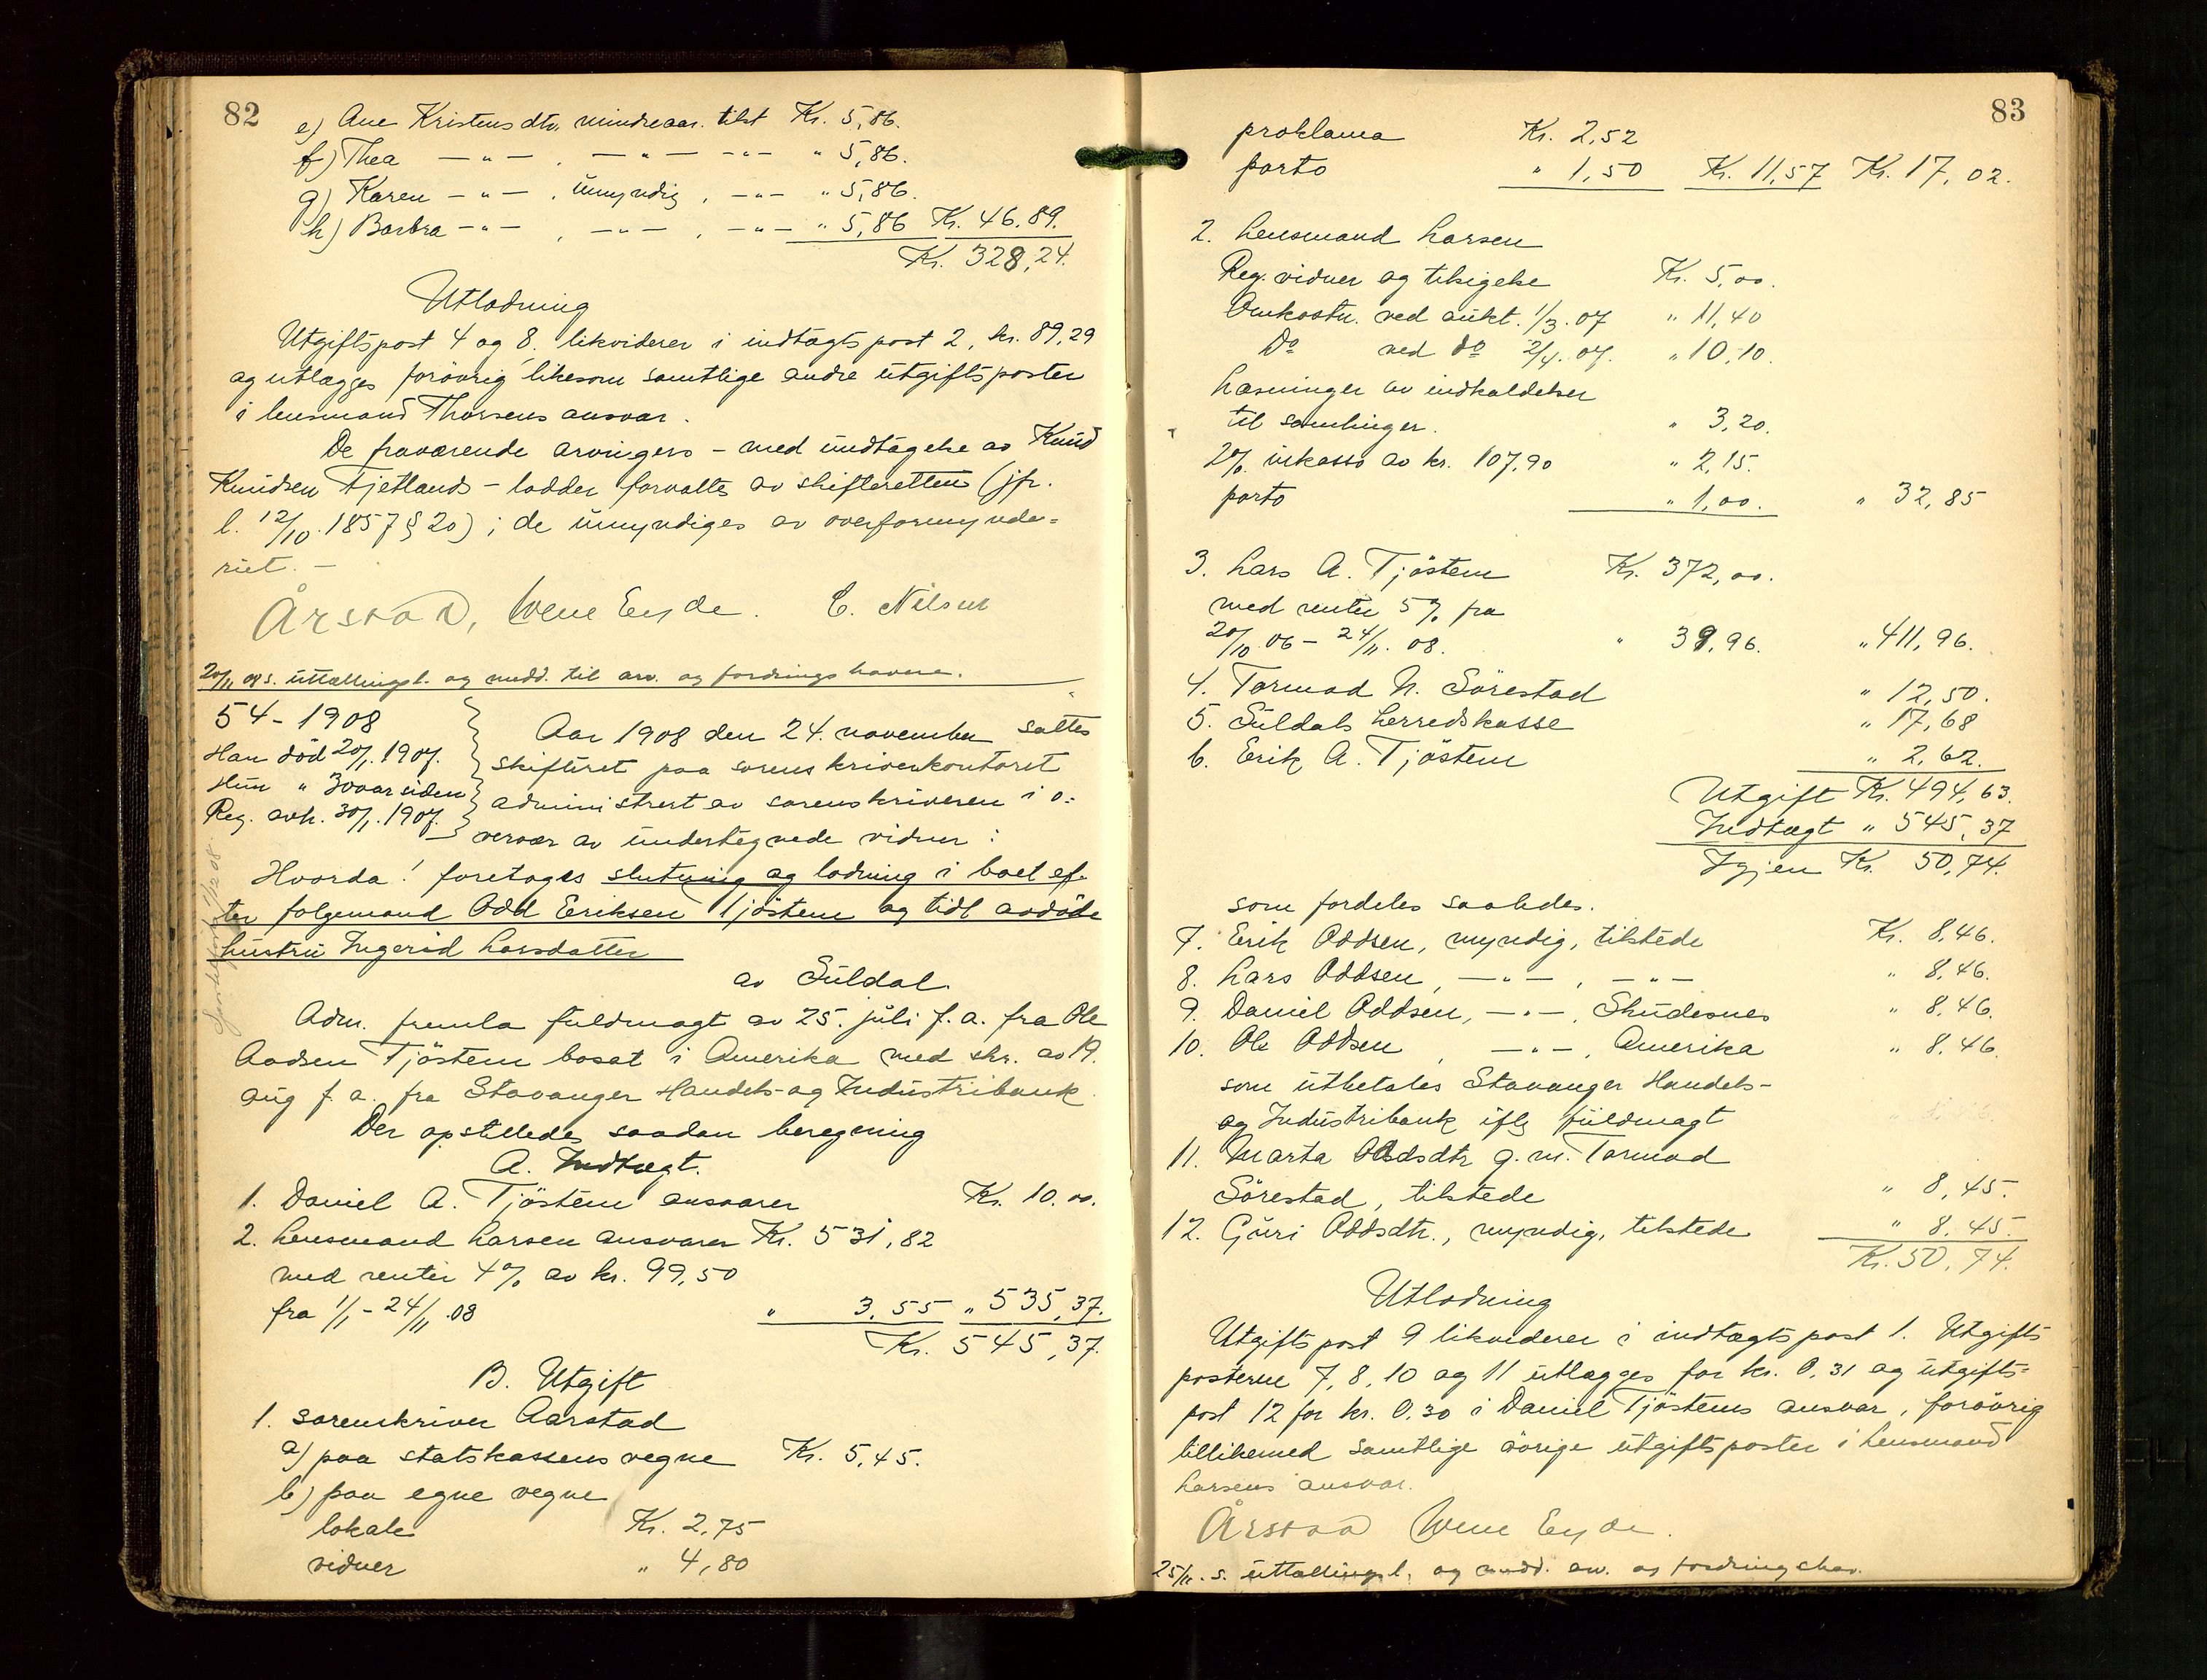 82
e) Ane Kristensdtr. mindreaar. tilst Kr. 5,86.
f) Thea —"— , —"— —"— " 5,86.
g) Karen —"— , umyndig , —"— " 5,86.
h) Barbra —"— , —"— , —"— " 5,86 Kr. 46.89.
Kr. 328,24.
Utlodning
Utgiftspost 4 og 8 likviderer i indtægtspost 2, kr. 89,29
og utlægges forövrig likesom samtlige andre utgiftsposter
i lensmand Thorsens ansvar.
De fraværende arvingers – med undtagelse av Knud
Knudsen Fjetlands – lodder forvaltes av skifteretten (jfr.
l. 12/10. 1857 § 20) ; de umyndiges av overformynde=
riet. —
Årstad, Wene Eeyde. C. Nilsen
20/11 08 s. uttællingsl. og medd. til arv. og fordringshavere.
54 - 1908
Han död 20/1. 1907.
Hun " 30 aar siden
Reg. avh. 30/1. 1907.
Aar 1908 den 24. november sattes
skifteret paa sorenskriverkontoret
administrert av sorenskriveren i o=
vervær av undertegnede vidner :
Hvorda! foretages slutning og lodning i boet ef=
ter folgemand Odd Eriksen Tjöstem og tidl avdöde
hustru Ingerid Larsdatter
av Suldal.
Adm. fremla fuldmagt av 25. juli f. a. fra Ole
Aadsen Tjöstem bosat i Amerika med skr. av 19.
aug f. a. fra Stavanger Handels- og Industribank.
Der opstilledes saadan beregning
A. Indtægt.
1. Daniel A. Tjöstem ansvarer Kr. 10.00.
2. Lensmand Larsen ansvarer Kr. 531,82
med renter 4% av kr. 99,50
fra 1/1 – 24/11 .08 " 3.55 " 535,37.
Kr. 545,37.
B. Utgift
1. sorenskriver Aarstad
a) paa statskassens vegne Kr. 5,45.
b) paa egne vegne
lokale Kr. 2,75
vidner " 4,80
83
proklama Kr. 2,52
porto " 1,50 Kr. 11,57 Kr. 17,02.
2. Lensmand Larsen
Reg. vidner og tilsigelse Kr. 5,00.
Omkostn. ved aukt. 1/3. 07 " 11,40
Do ved do 2/4. 07. " 10,10.
Læsninger av indkaldelser
til samlinger. " 3,20.
2% inkasso av kr. 107,90 " 2,15.
porto " 1,00. " 32,85
3. Lars A. Tjöstem Kr. 372,00.
med renter 5% fra
20/10. 06 – 24/11. 08. " 39,96. " 411,96.
4. Tormod N. Sörestad " 12,50.
5. Suldals Herredskasse " 17,68
6. Erik A. Tjöstem " 2,62.
Utgift Kr. 494,63.
Indtægt " 545,37
Igjen Kr. 50,74.
som fordeles saaledes.
7. Erik Oddsen, myndig, tilstede Kr. 8,46.
8. Lars Oddsen, —"— , —"— " 8,46.
9. Daniel Oddsen, —"— , Skudesnes " 8,46.
10. Ole Oddsen , —"— , Amerika " 8,46.
som utbetales Stavanger Handels-
og Industribank iflg fuldmagt
11. Marta Oddsdtr g. m. Tormod
Sörestad, tilstede " 8,45.
12. Guri Oddsdtr., myndig, tilstede " 8,45.
Kr. 50,74.
Utlodning
Utgiftspost 9 likviderer i indtægtspost 1. Utgifts
posterne 7, 8, 10 og 11 utlægges for kr. 0,31 og utgifts=
post 12 for kr. 0.30 i Daniel Tjöstems ansvar, forövrig
tillikemed samtlige övrige utgiftsposter i Lensmand
Larsens ansvar.
Årstad Wene Eeyde.
25/11. s. uttællingsl. og medd. arv. og fordringshav.